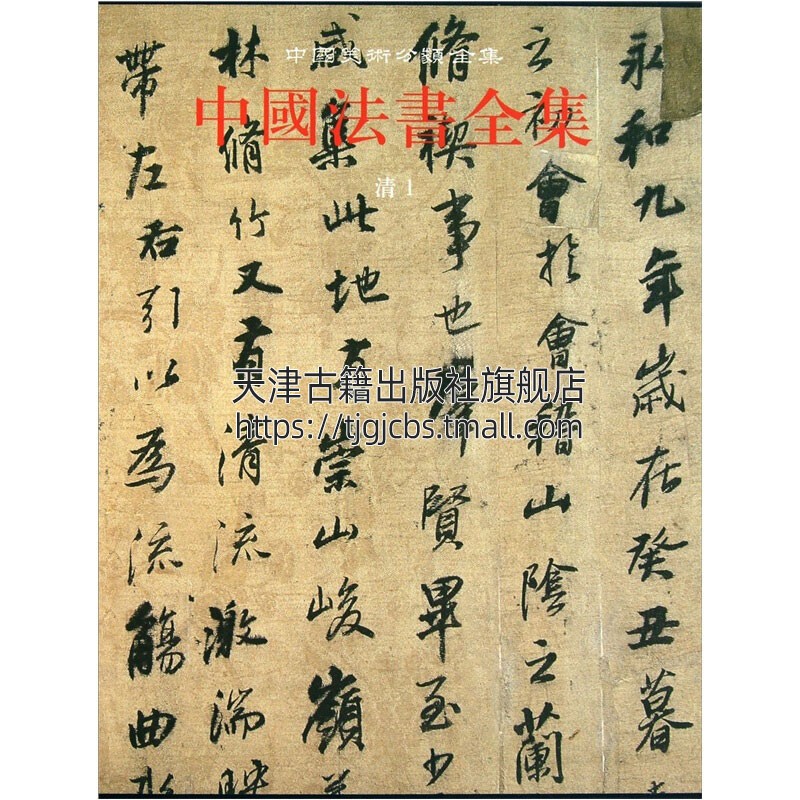 中國美術分類全集
中國法書全集
清 1
天津古籍出版社旗舰店
https://tjgjcbs.tmall.com
永和九年歲在癸丑暮
之初會於會稽山陰之蘭
脩禊事也群賢畢至少
咸集此地有崇山峻嶺
林脩竹又有清流激湍映
帶左右引以為流觴曲水